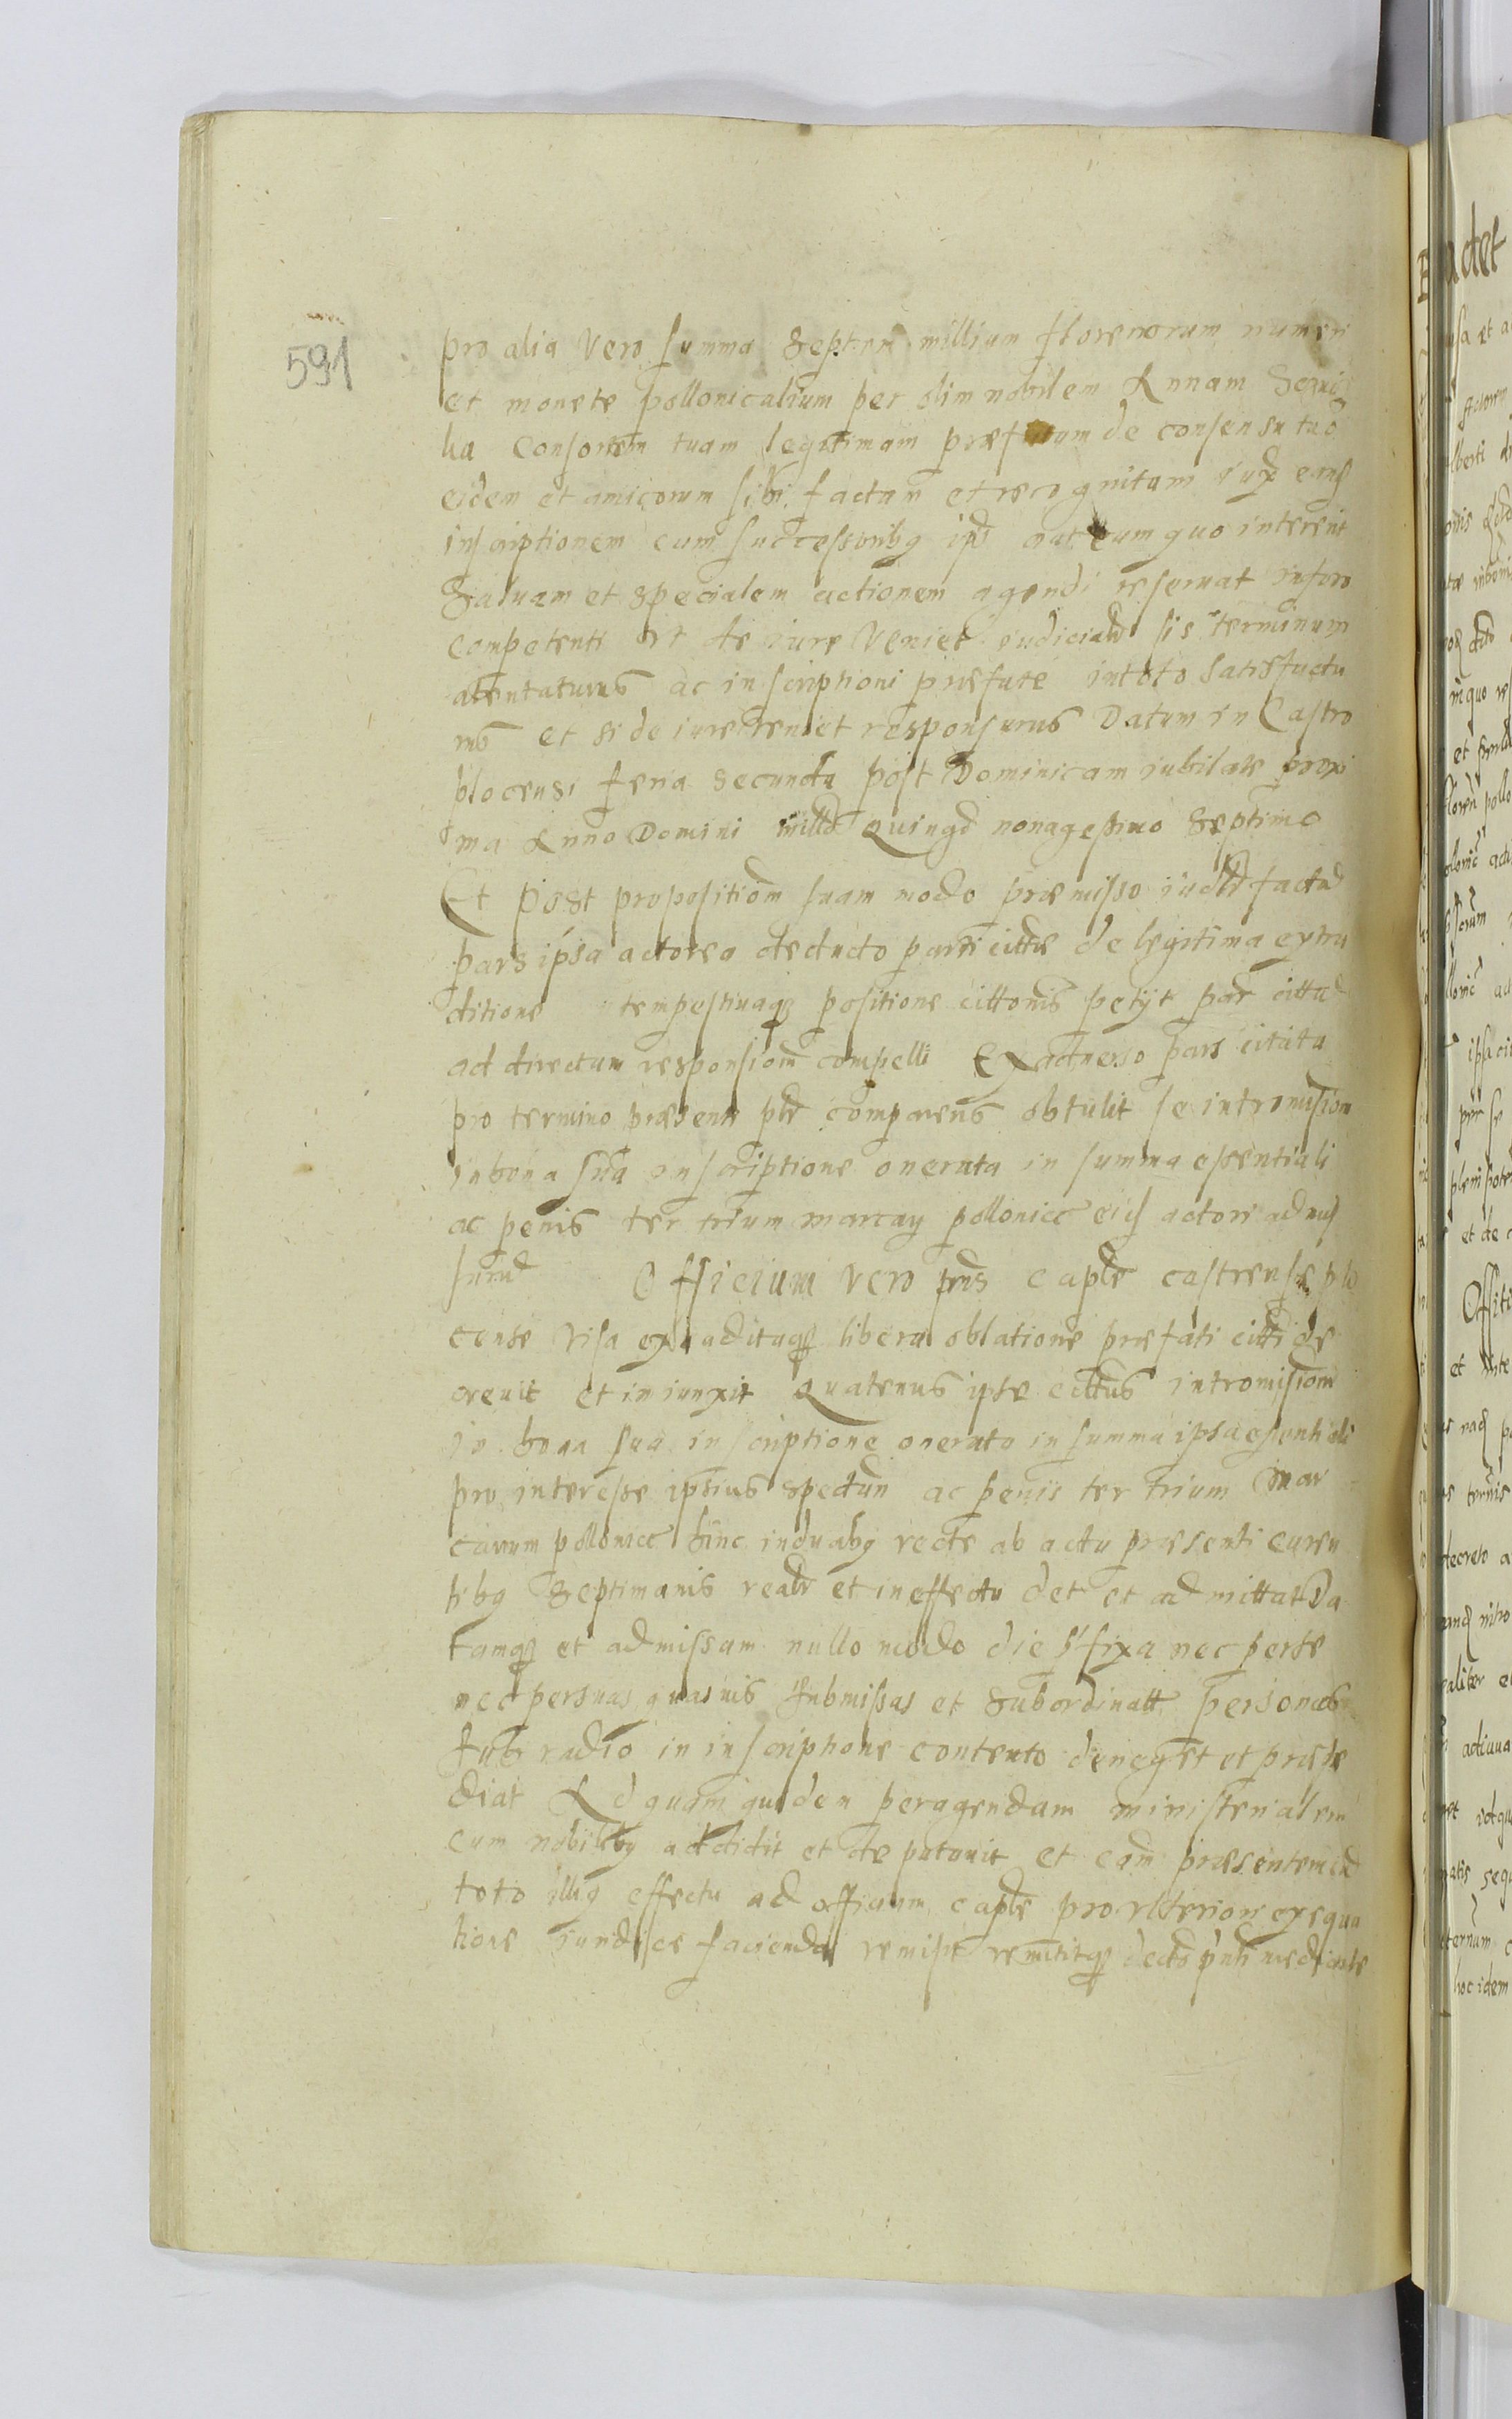 591
pro alia vero summa Septem millium florenorum numeri
et monete pollonicalium per olim nobilem Annam
consortem tuam legitimam præf de consensu tuo
eidem et amicorum sibi factam et recognitam iux eans
inscriptionem cum successoribq ips aut cum quo intererit
Saluam et specialem actionem agendi reseruat in foro
competenti vt de iure veniet iudicial sis terminum
atentaturus ac inscriptioni præfate in toto satisfactu
rus et si de iure veniet responsurus Datum in Castro
plocensi feria secunda post Dominicam iubilate proxi
ma Anno Domini millo Quingo nonagesimo Septimo
Et post propositiom suam modo præmisso iudi factã
pars ipsa actorea deducto parti cittæ de legitima extra
ditione tempestiuaq positione cittonis petÿt par citta
ad directum responsiom compelli Ex aduerso pars citata
pro termino præsenti plr comparens obtulit se intromission
in bona sua inscriptione onerata in summa essentiali
ac penis ter trium marcaq pollonicc eid actori admis
surũ Officium vero prns caple castrense plo
cense visa exauditaq libera oblatione præfati citti de
creuit et iniunxit Quatenus ipse cittus intromisiom
in bona sua inscriptione onerata in summa ipsa esentiali
pro interesse ipsius spectan ac penis ter trium mar
carum pollonicc hinc in duabq recte ab actu præsenti curen
tibq Septimanis realr et in effectu det et admittat Da
tamq et admissam nullo modo die sr fixa nec per se
nec per suas quasuis submissas et subordinatt personas
sub vadio in inscriptione contento deneget et præpe
diat Ad quam quidem peragendam ministerialem
cum nobilibq addidit et deputauit et eam præsentem cu
toto illiq effectu ad officium caple pro vlteriori exequu
tione iuridice facienda remisit remittitq decto pnti mediante